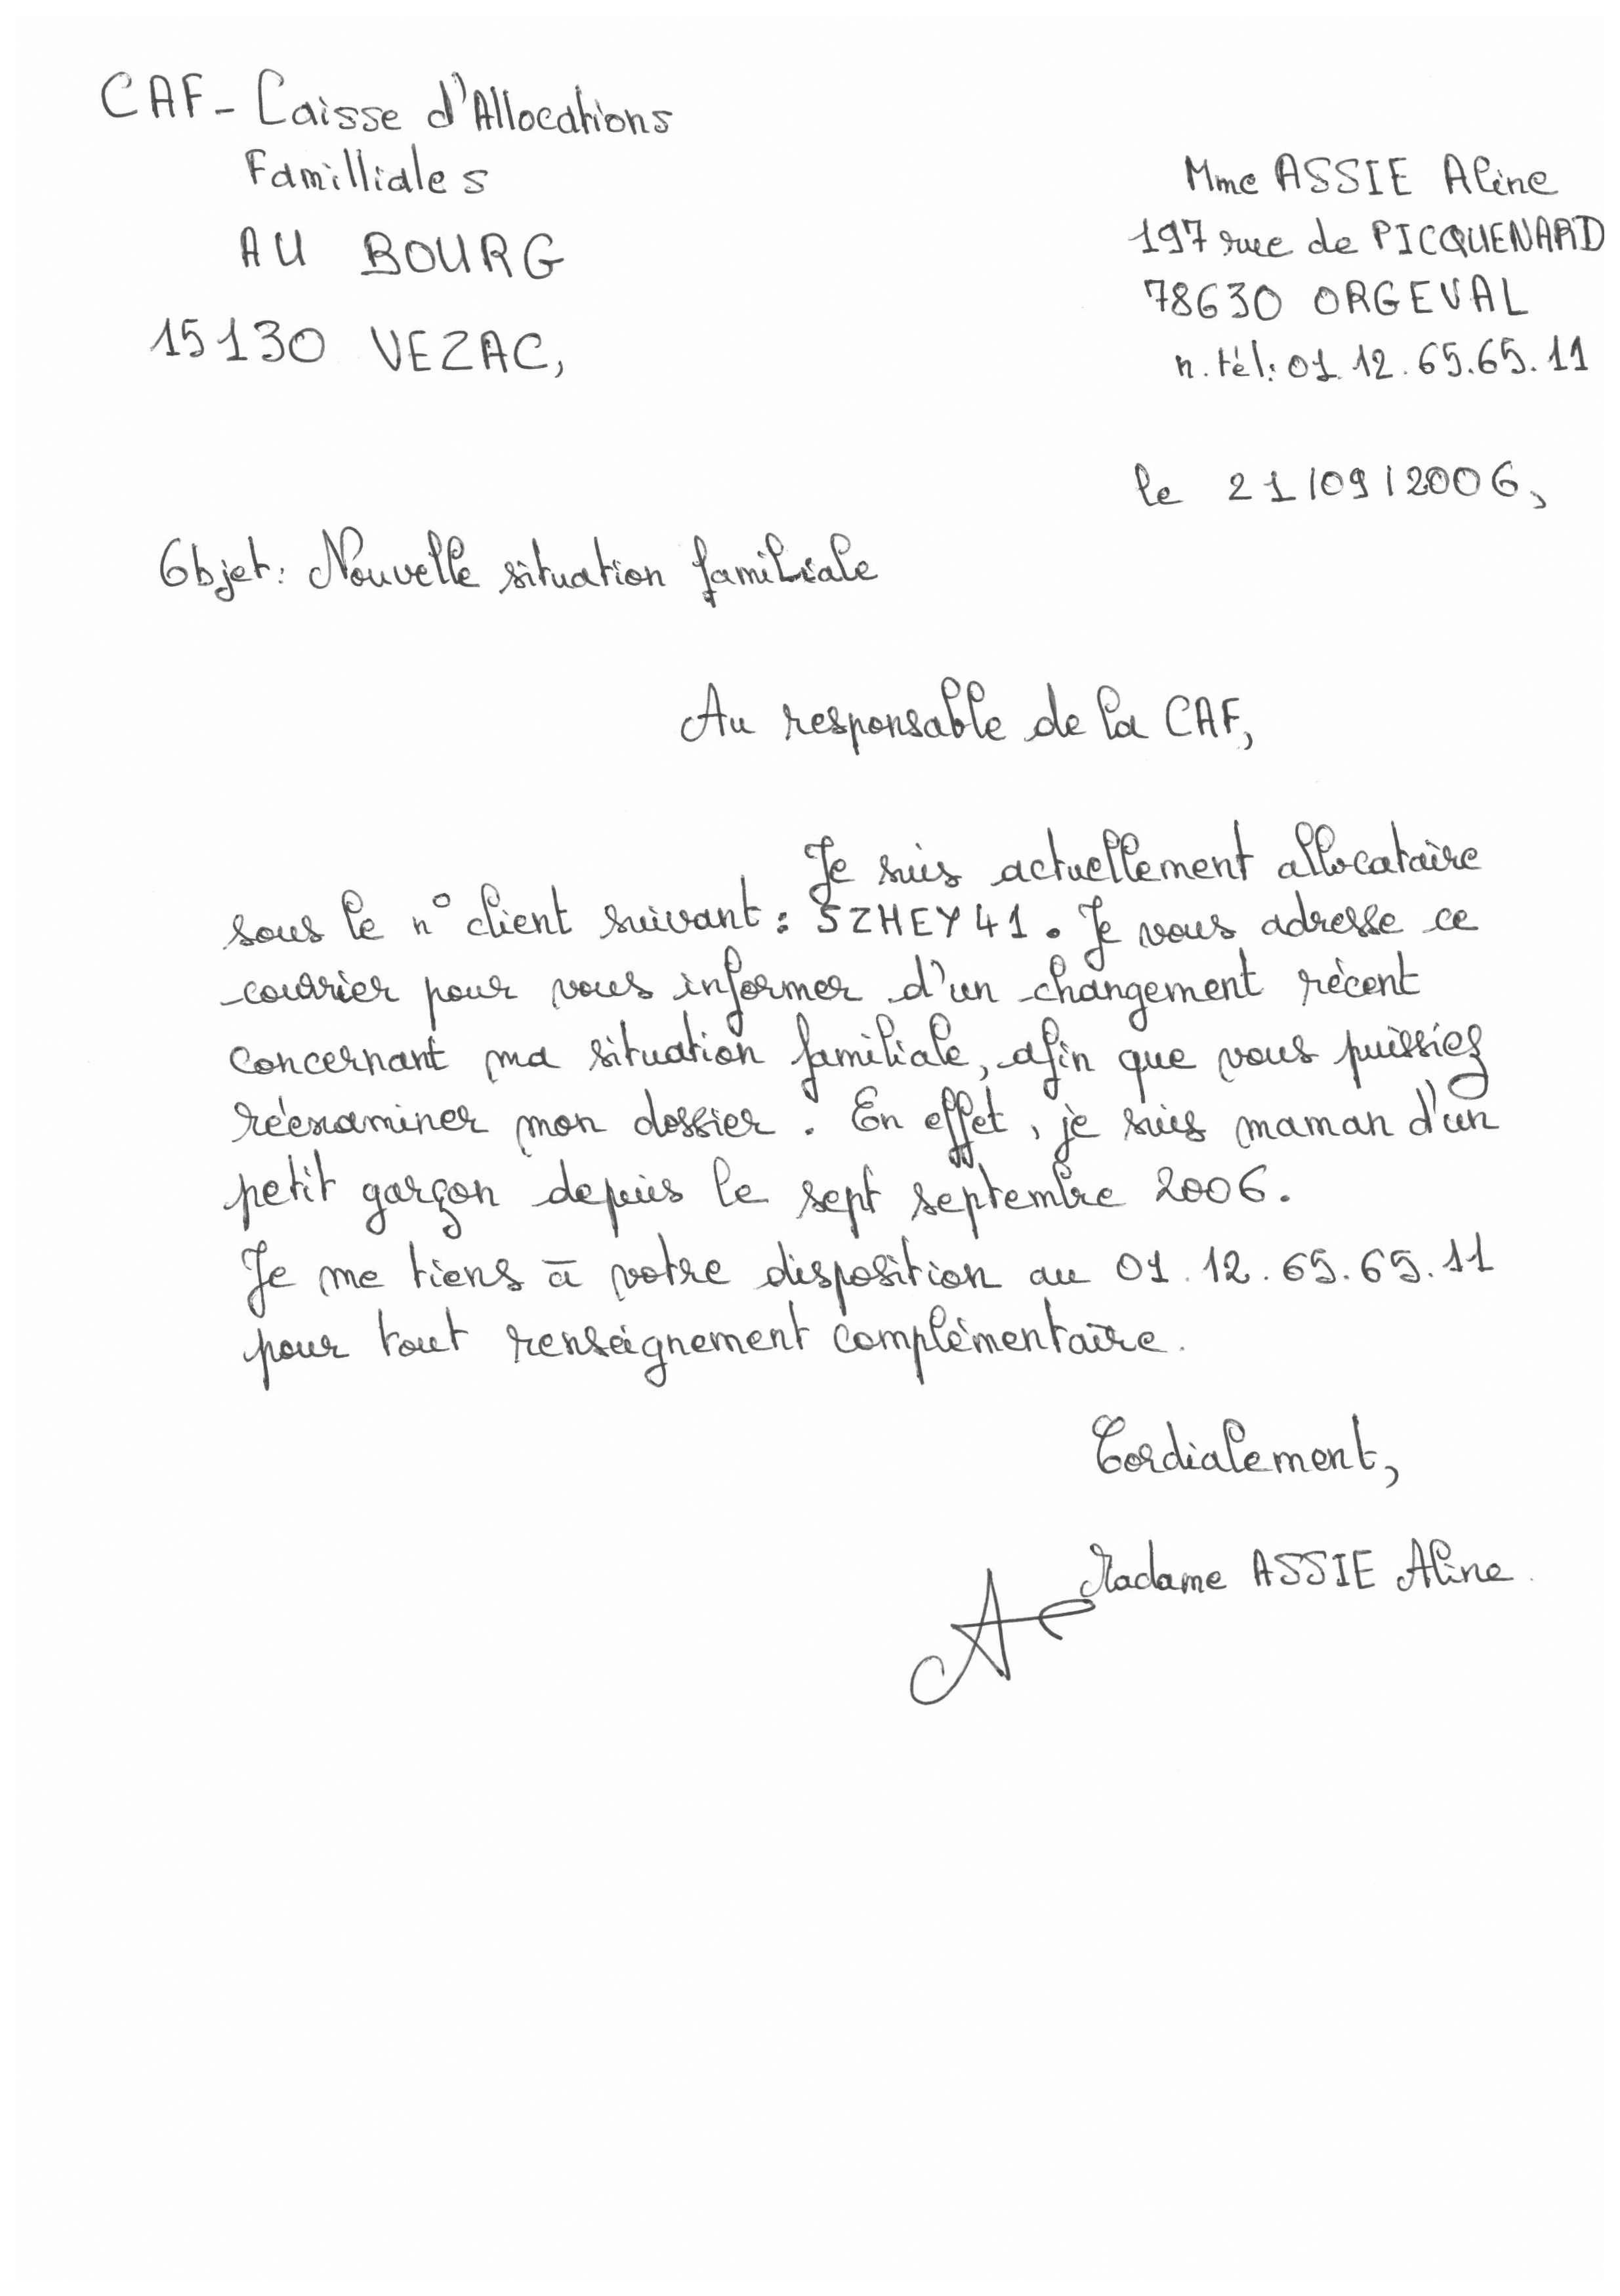 CAF - Caisse d'Allocations
Familliales
AU BOURG
15130 VEZAC,
Mme ASSIE Aline
197 rue de PICQUENARD
78630 ORGEVAL
n. tél: 01.12.65.65.11
le 21/09/2006,
Objet: Nouvelle situation familiale
Au responsable de la CAF,
Je suis actuellement allocataire
sous le n° client suivant : SZHEY41. Je vous adresse ce
courrier pour vous informer d'un changement récent
concernant ma situation familiale, afin que vous puissiez
réexaminer mon dossier. En effet, je suis maman d'un
petit garçon depuis le sept septembre 2006.
Je me tiens à votre disposition au 01.12.65.65.11
pour tout renseignement complémentaire.
Cordialement,
Madame ASSIE Aline.